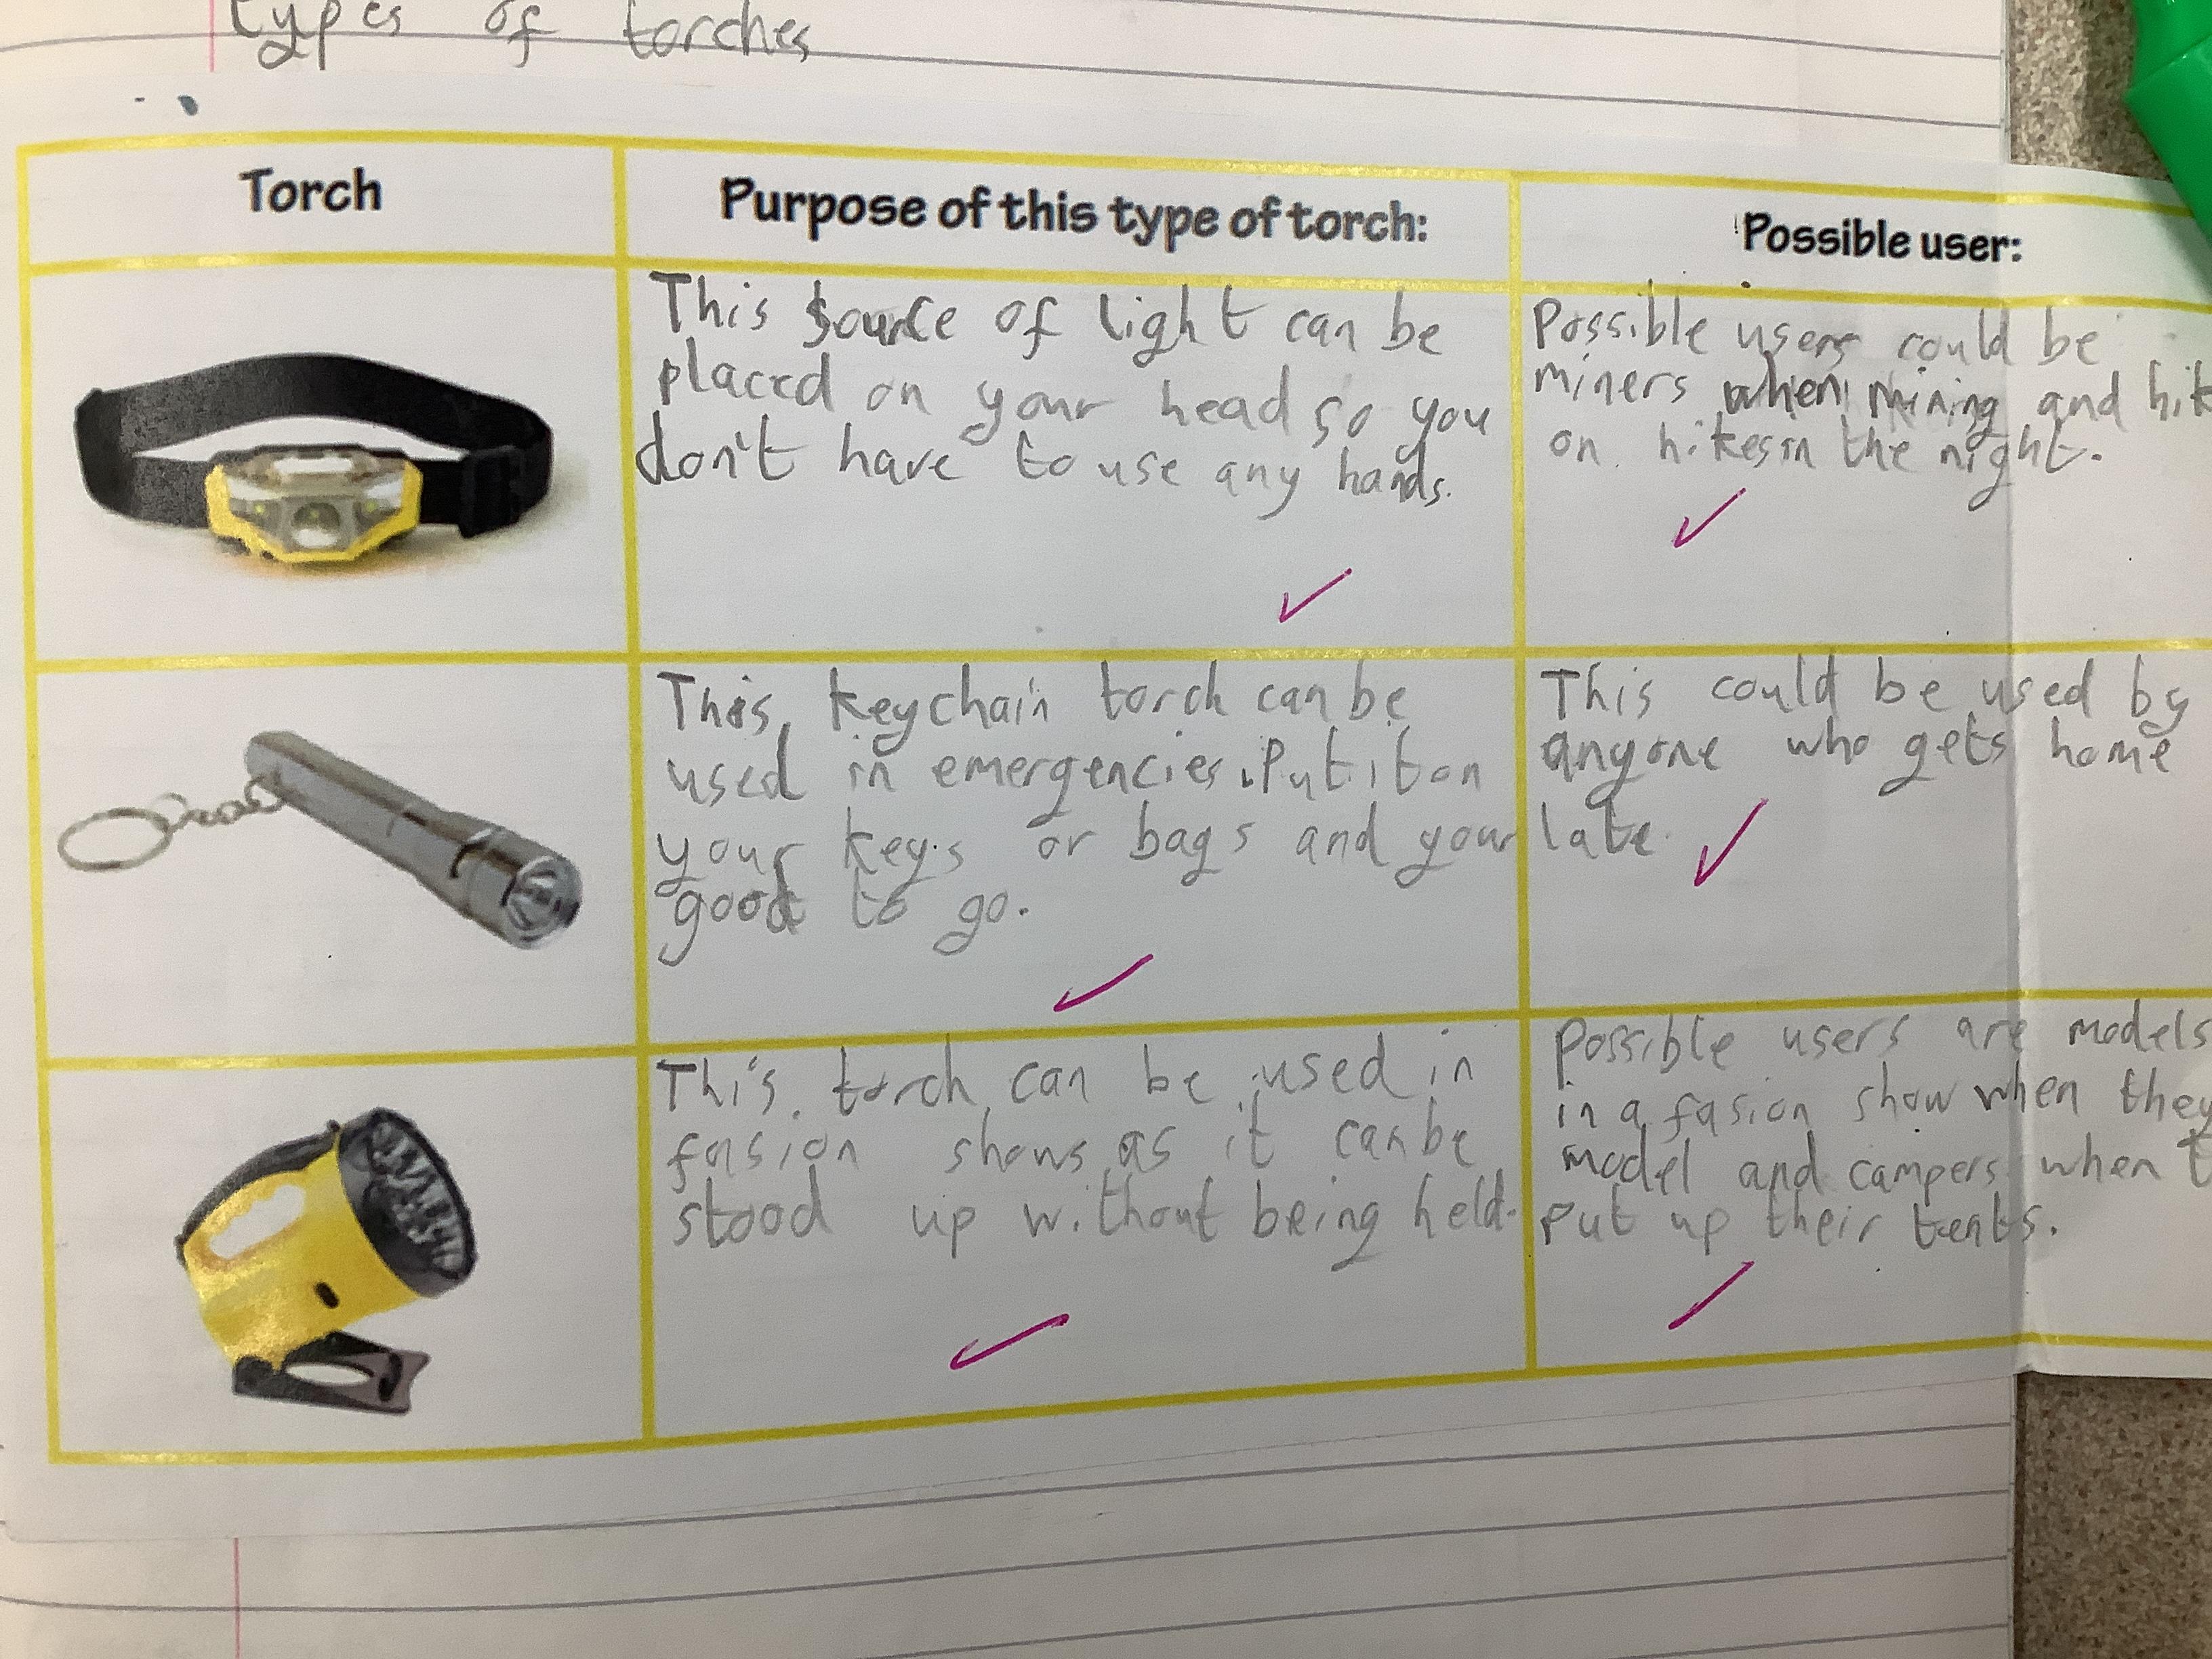 types of torches
Torch
Purpose of this type of torch:
Possible user:
This source of light can be
placed on your head so you
don't have to use any hands.
Possible users could be
miners when mining and
on hikes in the night.
This keychain torch can be
used in emergencies. Put it on
your keys or bags and your
good to go.
This could be used by
anyone who gets home
late.
This torch can be used in
fasion shows as it can be
stood up without being held.
Possible users are models
in a fasion show when they
model and campers when
put up their tents.